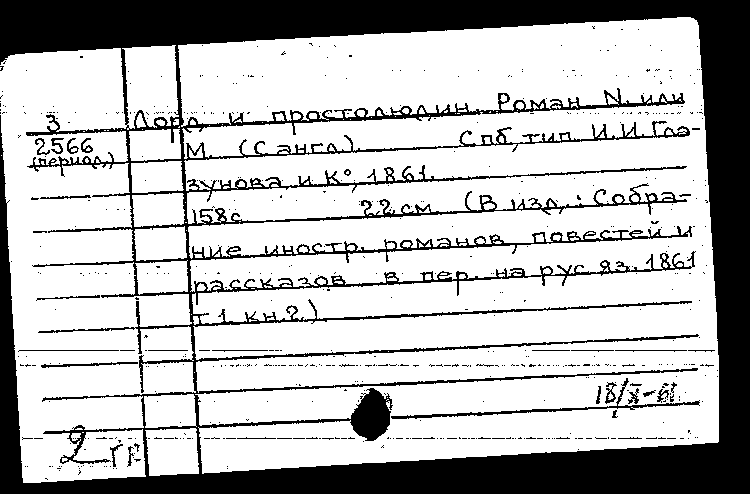 3 Лорд и простолюдин. Роман N. или
2566 М. (С англ.) Спб, тип. И.И. Гла-
(период.)
зунова и К°, 1861.
158с 22 см. (В изд.: Собра-
ние иностр. романов, повестей и
рассказов в пер. на рус яз. 1861
т.1 кн.2.)
18/X-61
2